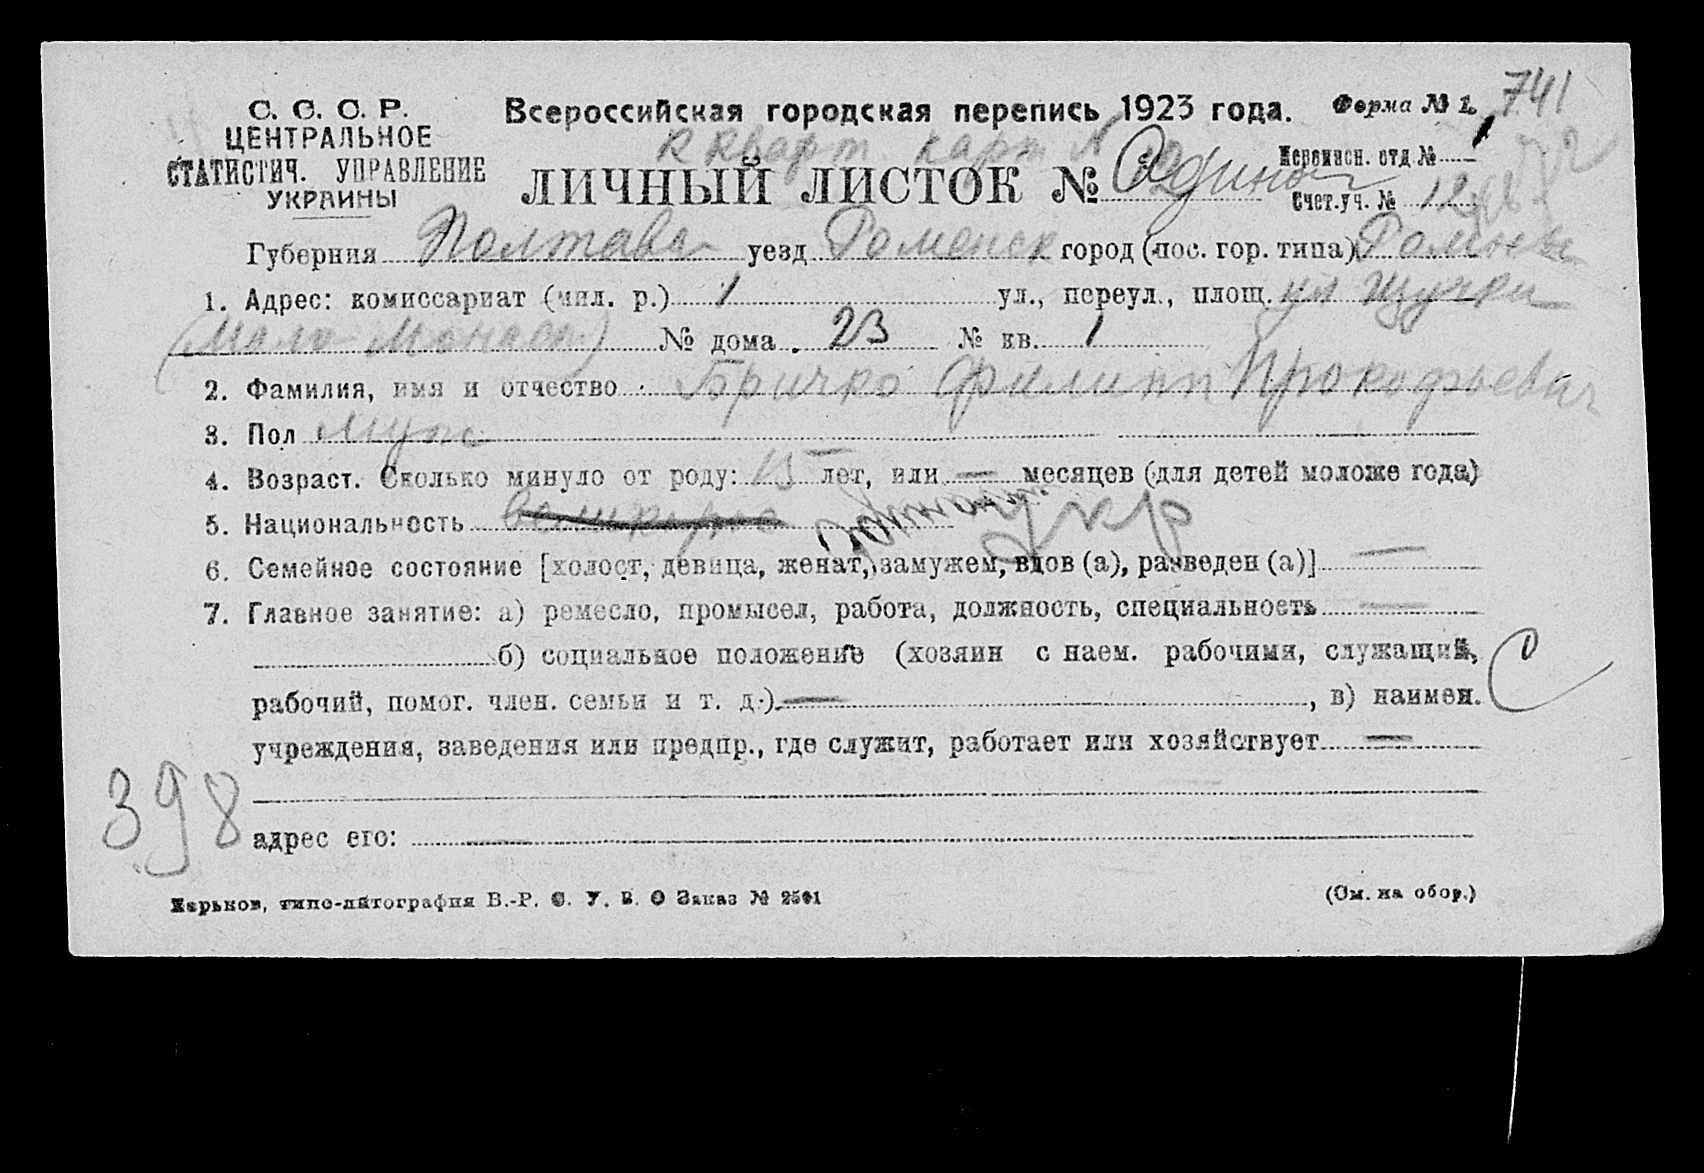 С. С. С. Р.
ЦЕНТРАЛЬНОЕ
СТАТИСТИЧ. УПРАВЛЕНИЕ
УКРАИНЫ
Всероссийская городская перепись 1923 года.
Форма № 1.
741
к кварт карт №
ЛИЧНЫЙ ЛИСТОК №
Переписн. отд. №
Счет. уч. № 12
Губерния Полтава уезд Роменск город (пос. гор. типа) Ромны
1. Адрес: комиссариат (мил. р.) 1 ул., переул., площ. ул Щучки
(Мало Монаст) № дома 23 № кв. 1
2. Фамилия, имя и отчество Бричко Филипп Прокофьевич
3. Пол муж
4. Возраст. Сколько минуло от роду: 15 лет, или — месяцев (для детей моложе года)
5. Национальность великорос укр
6. Семейное состояние [холост, девица, женат, замужем, вдов (а), разведен (а)] —
7. Главное занятие: а) ремесло, промысел, работа, должность, специальность —
б) социальное положение (хозяин с наем. рабочими, служащий,
рабочий, помог. член. семьи и т. д.) —, в) наимен.
учреждения, заведения или предпр., где служит, работает или хозяйствует —
398
адрес его: —
Харьков, типо-литография В.-Р. С. У. В. О Заказ № 2501
(См. на обор.)